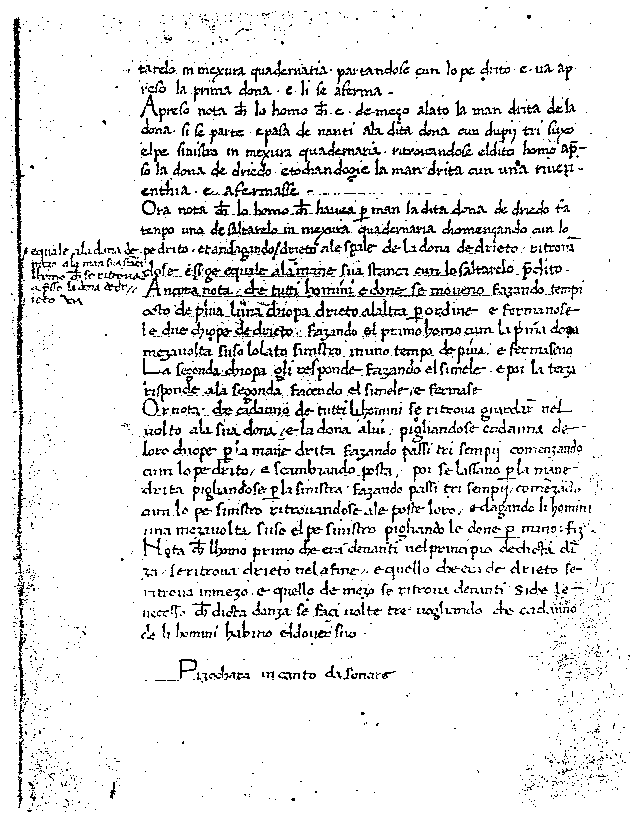 tarelo in mexura quadernaria · partandose cun lo pe drito · e · va ap
reso la prima dona · e · li se aferma ·
Apreso nota ch̄ lo homo ch̄ · e · de mezo alato la man drita de la
dona · si se parte · e pasa de nanti ala dita dona cun dupij tri suxo
el pe sinistro in mexura quadernaria · ritrovandose el dito homo ap̄
so la dona de driedo · e tochandogie la man drita cun una river
enthia · e · afermasse ·
Ora nota ch̄ lo homo ch̄ havea p̄ man la dita dona de driedo fa
tempo uno de saltarelo in mexura quadernaria chomenzando cun lo
pe drito · et andagando drieto ale spale de la dona de drieto · ritrova
equale · ala dona de
lhomo ch̄ se ritrova
apresso la dona de dr
ieto
dose · e sige equale ala mane sua stanca cun lo saltarelo p̄dito ·
Ancora nota · che tutti homini e done se moveno fazando tempi
octo de piva luna chopa drieto alaltra p ordine · e fermanose
le due chope de drieto · fazando el primo homo cum la prima dona
meza volta suso lo lato sinistro in uno tempo de piva · e fermaseno
La segonda chopa gli responde fazando el simele · e poi la terza
risponde ala segonda facendo el simele · e fermase
Or nota · che cadauno de tutti li homini se ritrova guardar nel
volto ala sua dona · e la dona alui · pigliandose cadauna de
loro chiope p la mane drita fazando passi tri sempij comenzando
cum lo pe drito · e scambiando posta · poi se lassano p la mane
drita pigliandose p la sinistra · fazando passi tri sempij comēzado
cun lo pe sinistro ritrovandose ale poste loro · e dagando li homini
una meza volta suso el pe sinistro pigliando le done p mano · fiz
Nota ch̄ lhomo primo che era denanti nel principio de dicta dā
za · se ritrova drieto nela fine · e quello che era de drieto se
ritrova in mezo · e quello de mezo se ritrova denanti Si che le
necesso ch̄ dicta danza se faci volte tre vogliando che cadauno
de li homini habino el dover suo ·
Pizochara in canto da sonare